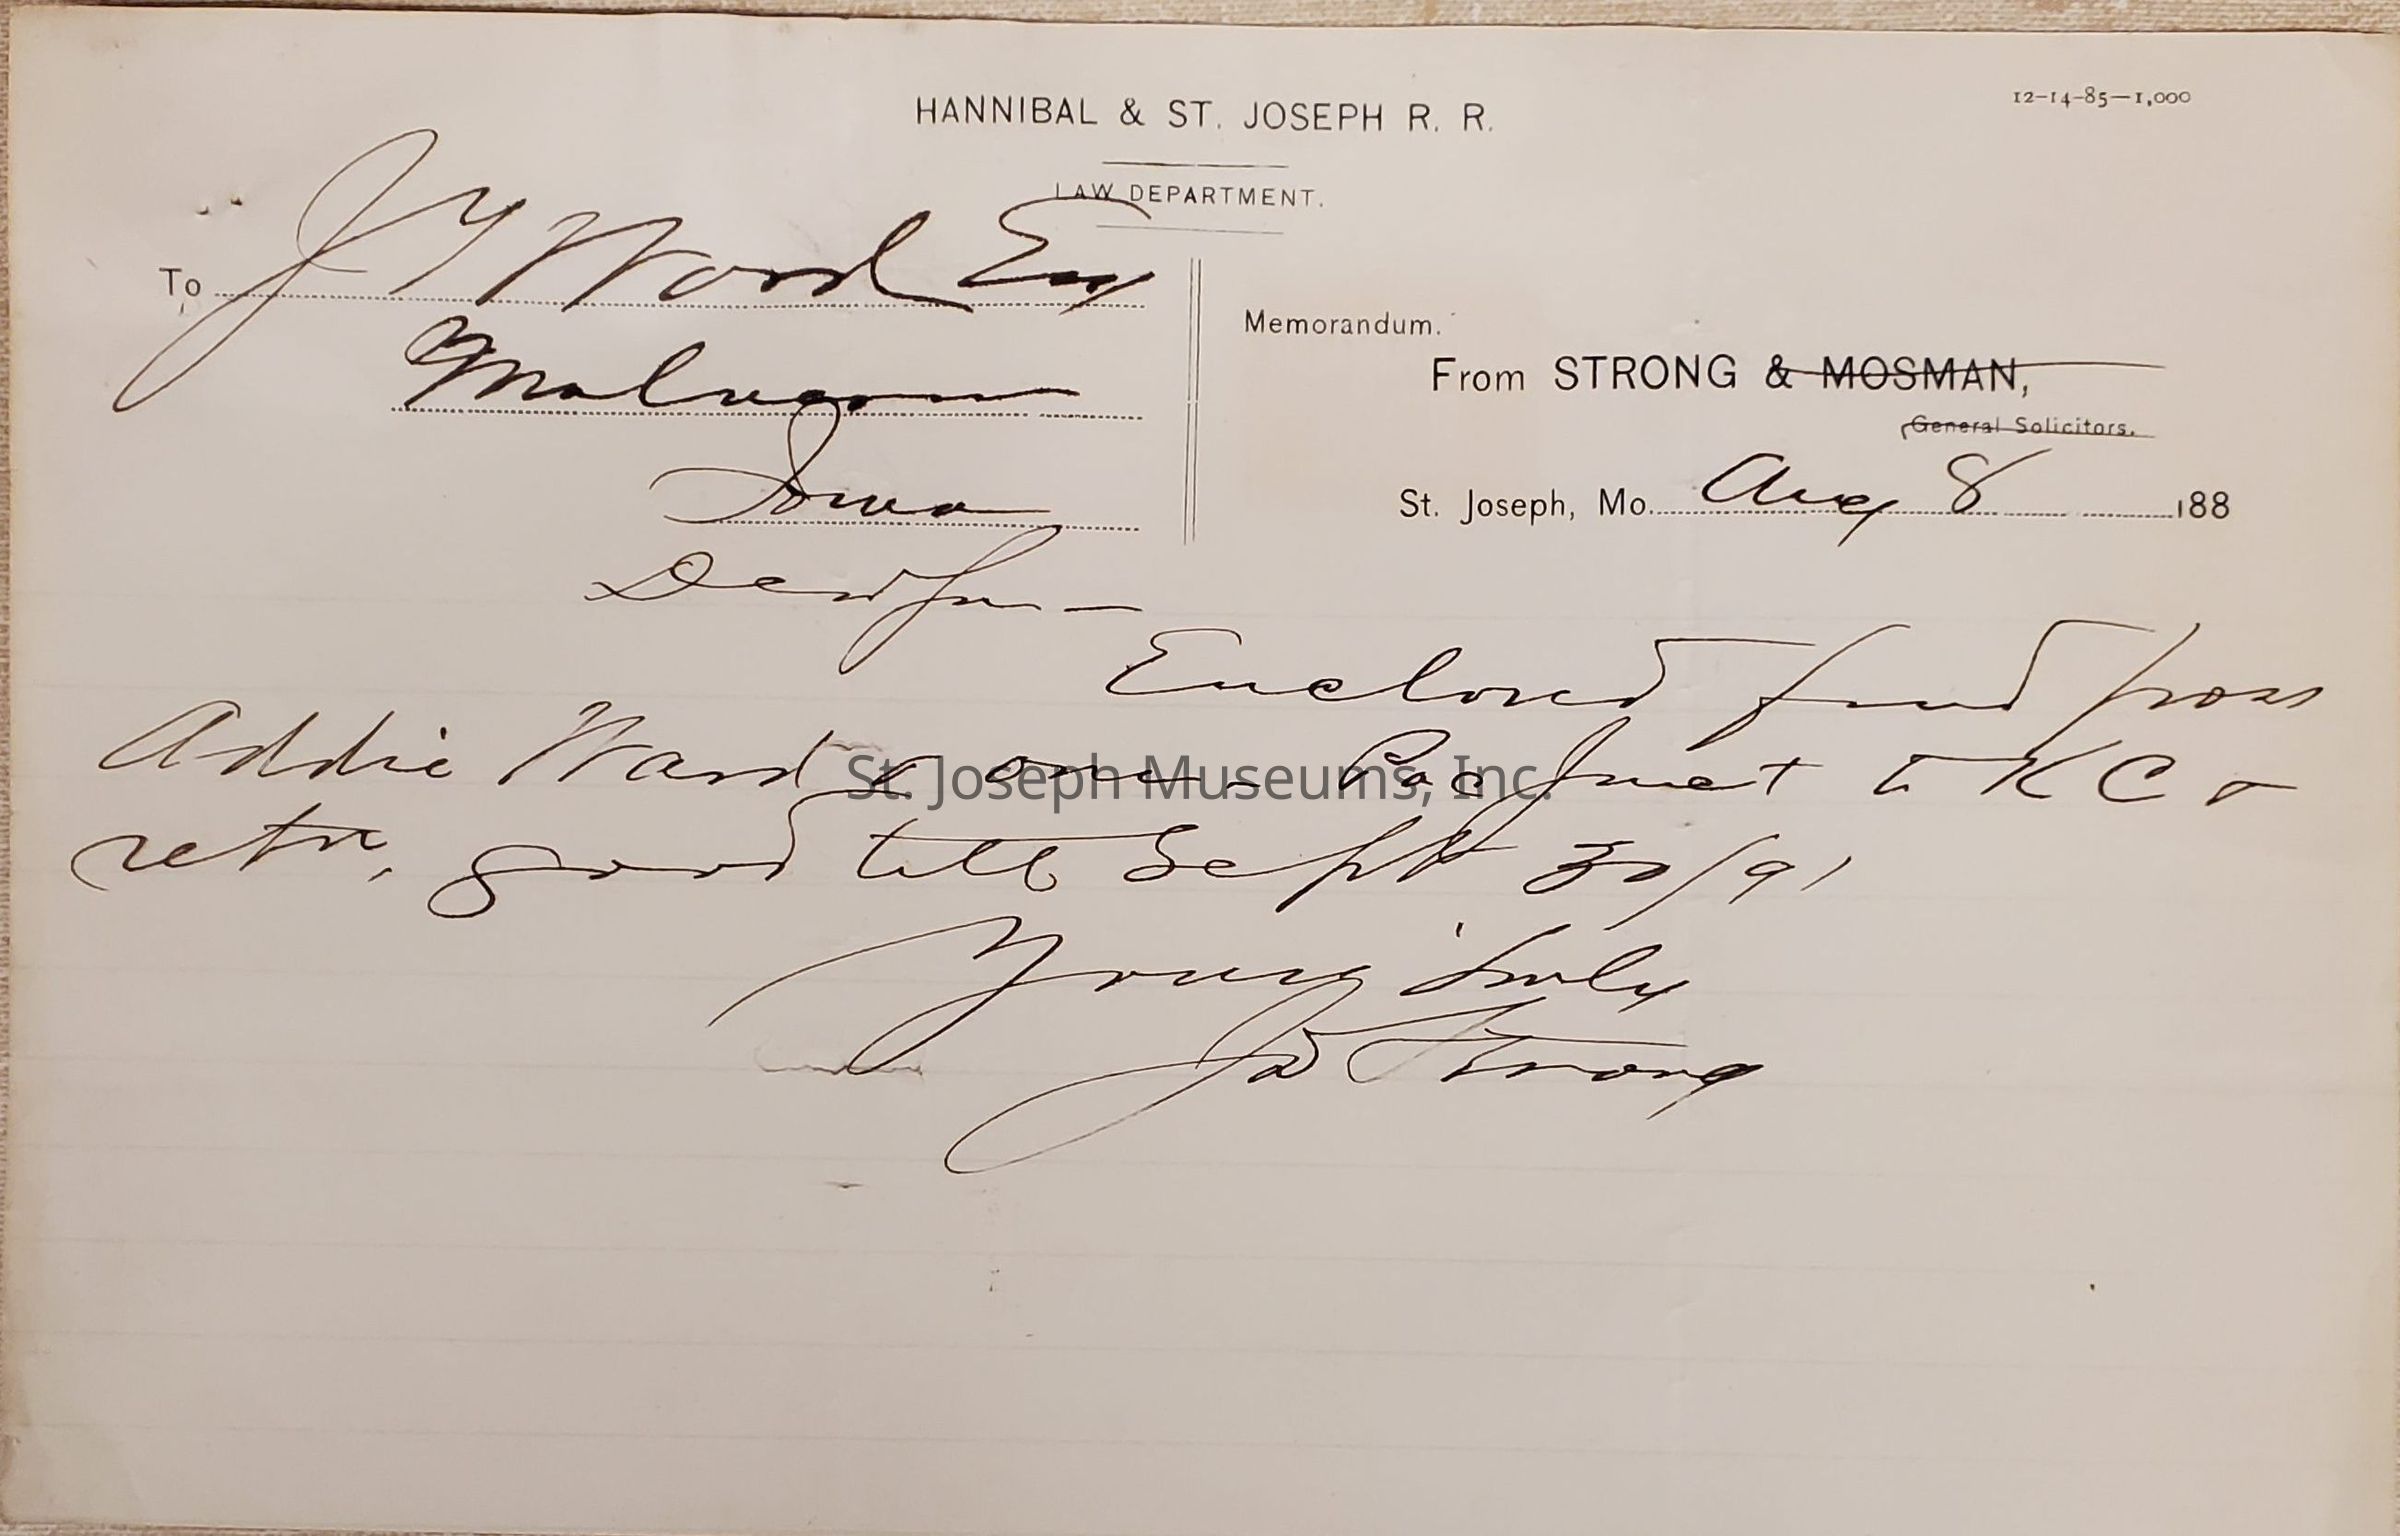 HANNIBAL & ST. JOSEPH R. R.
12-14-85-1,000
LAW DEPARTMENT.
To J Y Wood Esq
Malvern
Iowa
Memorandum.
From STRONG & MOSMAN,
General Solicitors.
St. Joseph, Mo. Aug 8 188
Dear Sir -
Enclosed find pass
Addie Ward & one - Pac Junct to K C &
retn, good till Sept 30/91
Yours truly
J D Strong
St. Joseph Museums, Inc.